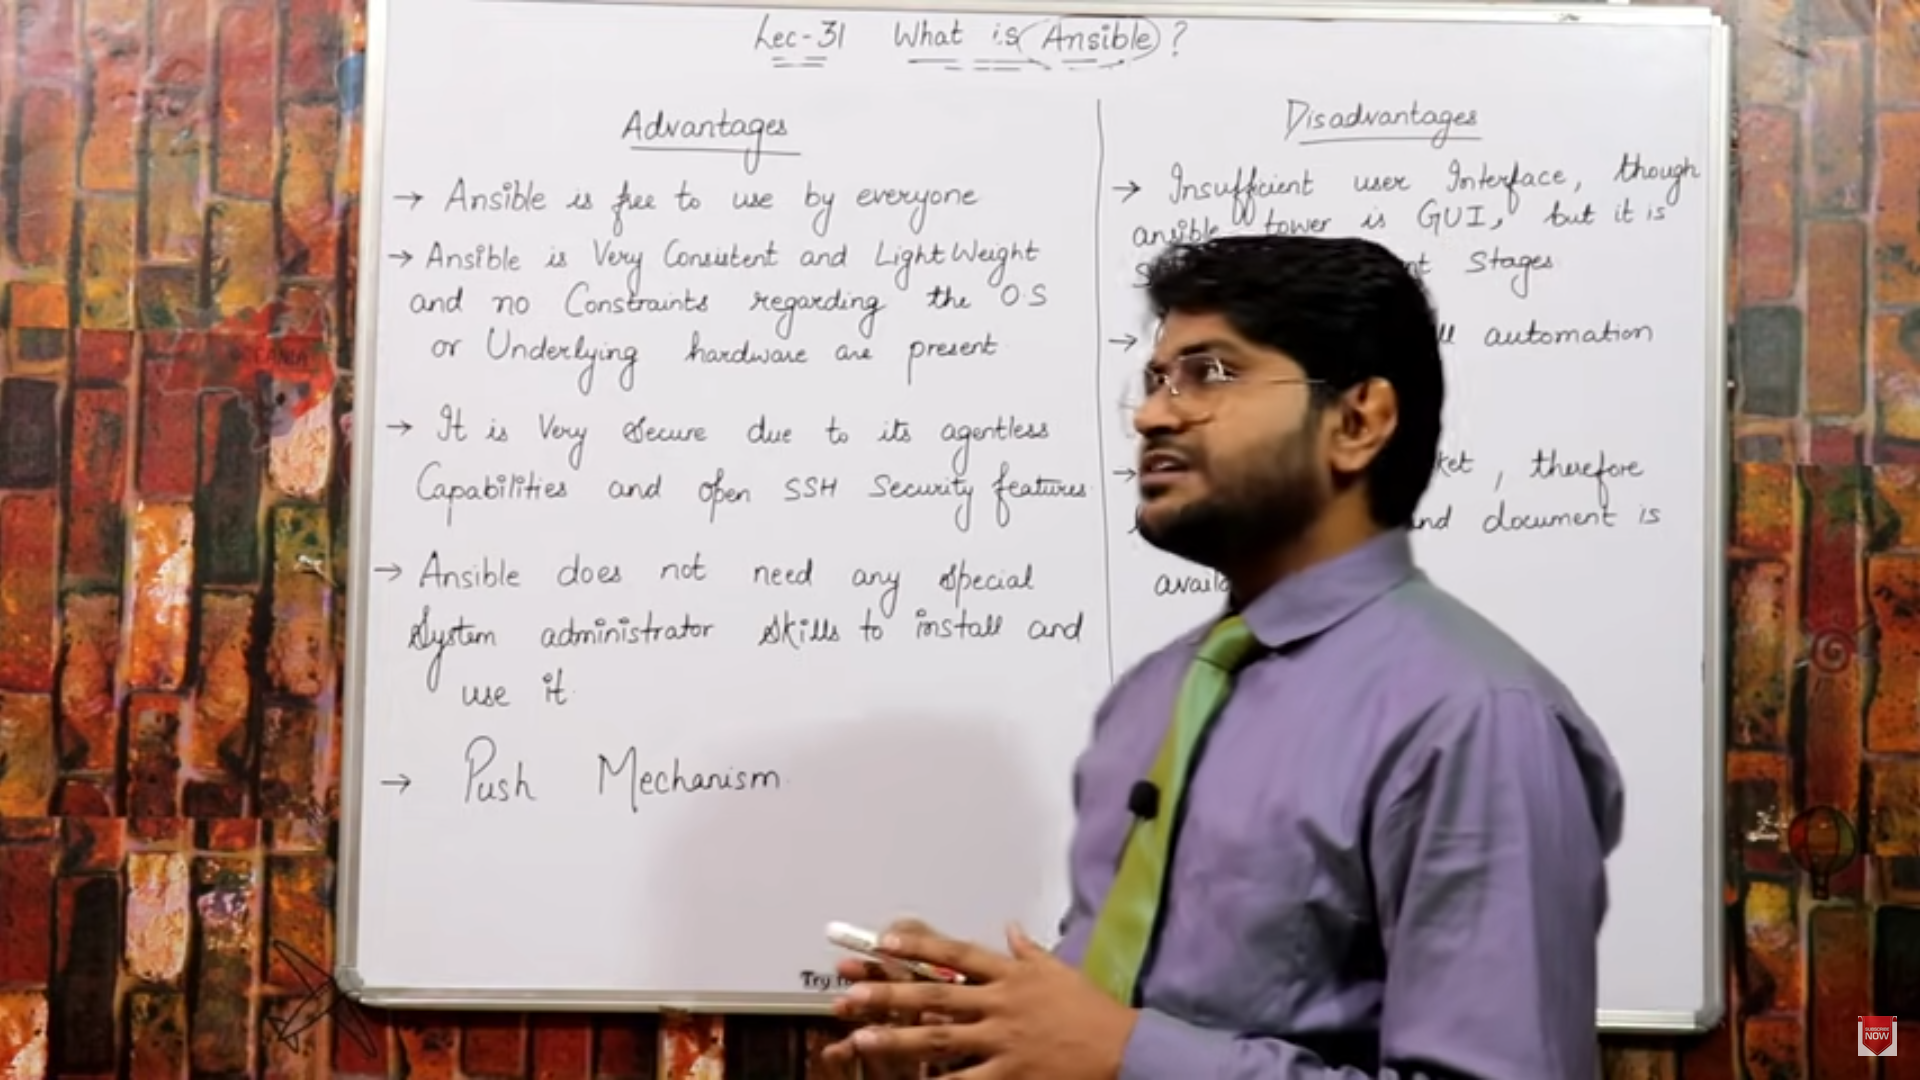 Lec-31 What is Ansible ?
Advantages
→ Ansible is free to use by everyone
→ Ansible is Very Consistent and Light Weight
and no Constraints regarding the O.S
or Underlying hardware are present
→ It is Very Secure due to its agentless
Capabilities and open SSH Security features
→ Ansible does not need any special
System administrator skills to install and
use it
→ Push Mechanism
Disadvantages
→ Insufficient user Interface, though
ansible tower is GUI, but it is
Stages
→ automation
→ , therefore
document is
Try
SUBSCRIBE
NOW